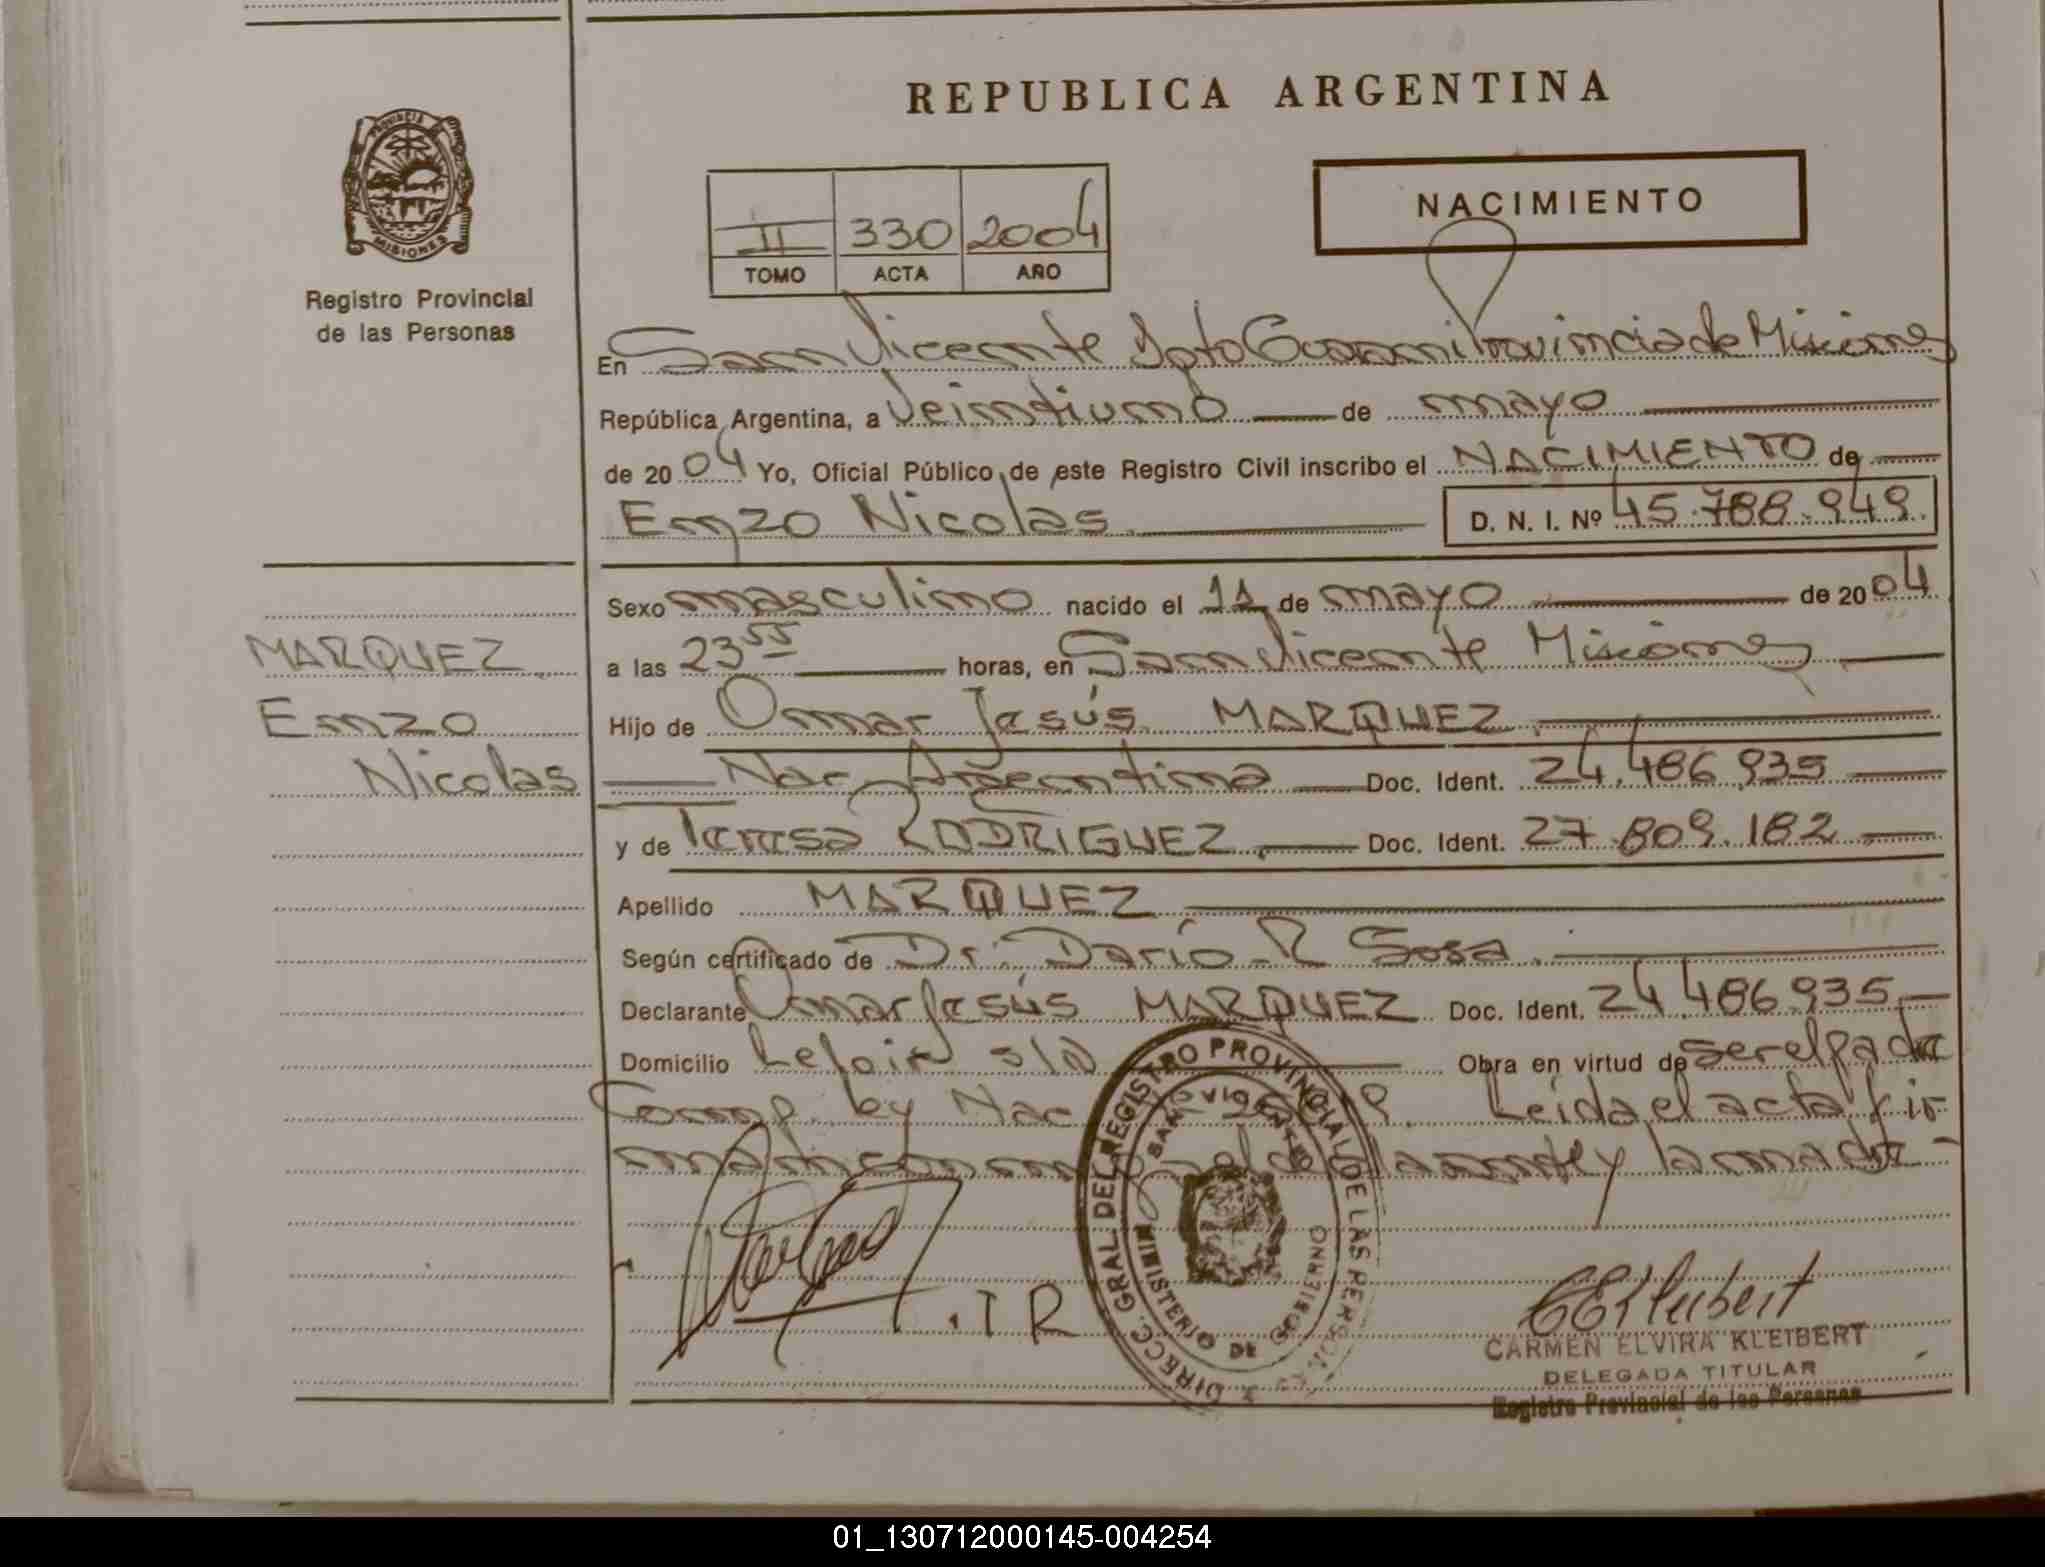 REPUBLICA ARGENTINA
PROVINCIA DE MISIONES
Registro Provincial
de las Personas
II 330 2004
TOMO ACTA AÑO
NACIMIENTO
En San Vicente Dpto Guaraní Provincia de Misiones
República Argentina, a Veintiuno de mayo
de 2004 Yo, Oficial Público de este Registro Civil inscribo el NACIMIENTO de
Enzo Nicolas. D. N. I. Nº 45.788.949.
Sexo masculino nacido el 11 de mayo de 2004
a las 23 55 horas, en San Vicente Misiones
Hijo de Omar Jesús MARQUEZ.
Nac. Argentina Doc. Ident. 24.486.935
y de Teresa RODRIGUEZ. Doc. Ident. 27.809.182.
Apellido MARQUEZ
Según certificado de Dr. Darío R Sosa.
Declarante Omar Jesús MARQUEZ Doc. Ident. 24.486.935
Domicilio Leloir s/n Obra en virtud de ser el padre
Comp. by Nac Leída el acta fir
man el y la madre
MARQUEZ
Enzo
Nicolas
T R
DIRECC. GRAL. DEL REGISTRO PROVINCIAL DE LAS PERSONAS
SAN VICENTE
MINISTERIO DE GOBIERNO
CEKleibert
CARMEN ELVIRA KLEIBERT
DELEGADA TITULAR
Registro Provincial de las Personas
01_130712000145-004254